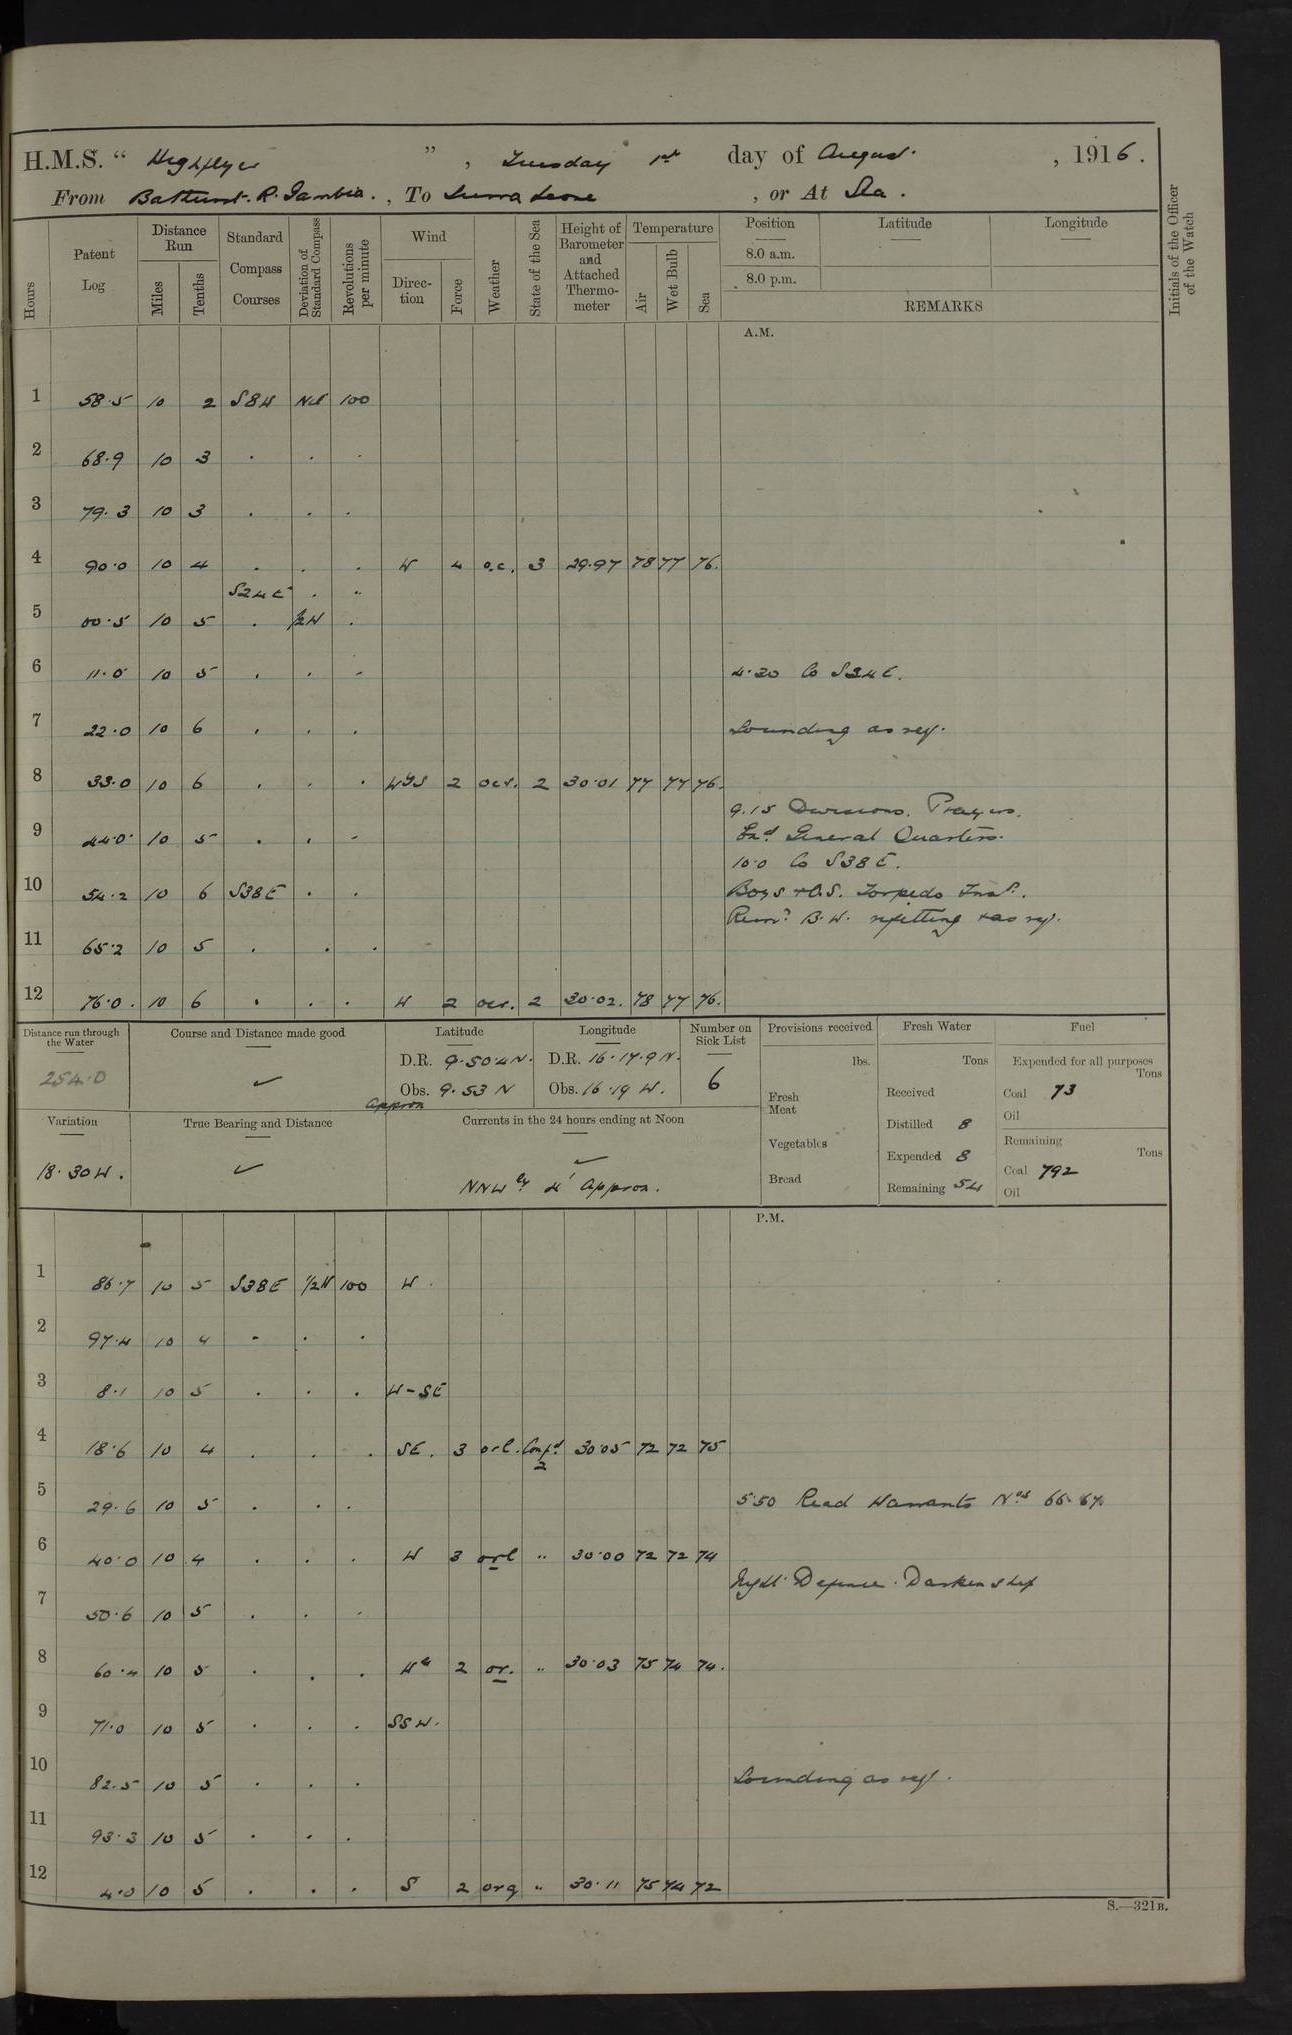 H.M.S. “ Highflyer ” , Tuesday 1st day of August , 1916.
From Bathurst. R. Gambia. , To Sierra Leone , or At Sea.
Hours Patent Log Distance Run Miles Tenths Standard Compass Courses Deviation of Standard Compass Revolutions per minute Wind Direction Force Weather State of the Sea Height of Barometer and Attached Thermometer Temperature Air Wet Bulb Sea Position 8.0 a.m. 8.0 p.m. Latitude Longitude REMARKS
Initials of the Officer of the Watch
A.M.
1 58.5 10 2 S8W Nil 100
2 68.9 10 3 . . .
3 79.3 10 3 . . .
4 90.0 10 4 . . . W 4 o.c. 3 29.97 78 77 76.
S24E . "
5 00.5 10 5 . ½W .
6 11.0 10 5 . . . 4.20 Co S24E.
7 22.0 10 6 . . . Sounding as req.
8 33.0 10 6 . . . WbS 2 ocr. 2 30.01 77 77 76.
9.15 Divisions. Prayers.
9 44.0 10 5 . . . Exd General Quarters.
10.0 Co S38E.
10 54.2 10 6 S38E . . Boys & O.S. Torpedo Inst.
Remr B.W. refitting & as req.
11 65.2 10 5 . . .
12 76.0. 10 6 . . . W 2 ocr. 2 30.02. 78 77 76.
Distance run through the Water Course and Distance made good Latitude Longitude Number on Sick List Provisions received Fresh Water Fuel
254.0 ✓ D.R. 9.50.4 N. D.R. 16.17.9 W. 6 lbs. Tons Expended for all purposes Tons
Obs. 9.53 N Obs. 16.19 W. Fresh Meat Received Coal 73
approx Distilled 8 Oil
Variation True Bearing and Distance Currents in the 24 hours ending at Noon Vegetables Expended 8 Remaining Tons
18.30W. ✓ ✓ Bread Remaining 54 Coal 792
NNWly 4' Approx. Oil
P.M.
1 86.7 10 5 S38E ½W 100 W.
2 97.4 10 4 . . .
3 8.1 10 5 . . . W-SE
4 18.6 10 4 . . . SE. 3 orl. Confd 2 30.05 72 72 75
5 29.6 10 5 . . . 5.50 Read Warrants Nos 66. 67.
6 40.0 10 4 . . . W 3 orl " 30.00 72 72 74
Night Defence. Darken ship
7 50.6 10 5 . . .
8 60.4 10 5 . . . Wly 2 or. " 30.03 75 74 74.
9 71.0 10 5 . . . SSW.
10 82.5 10 5 . . . Sounding as req.
11 93.3 10 5 . . .
12 4.0 10 5 . . . S 2 orq " 30.11 75 74 72
S.—321B.